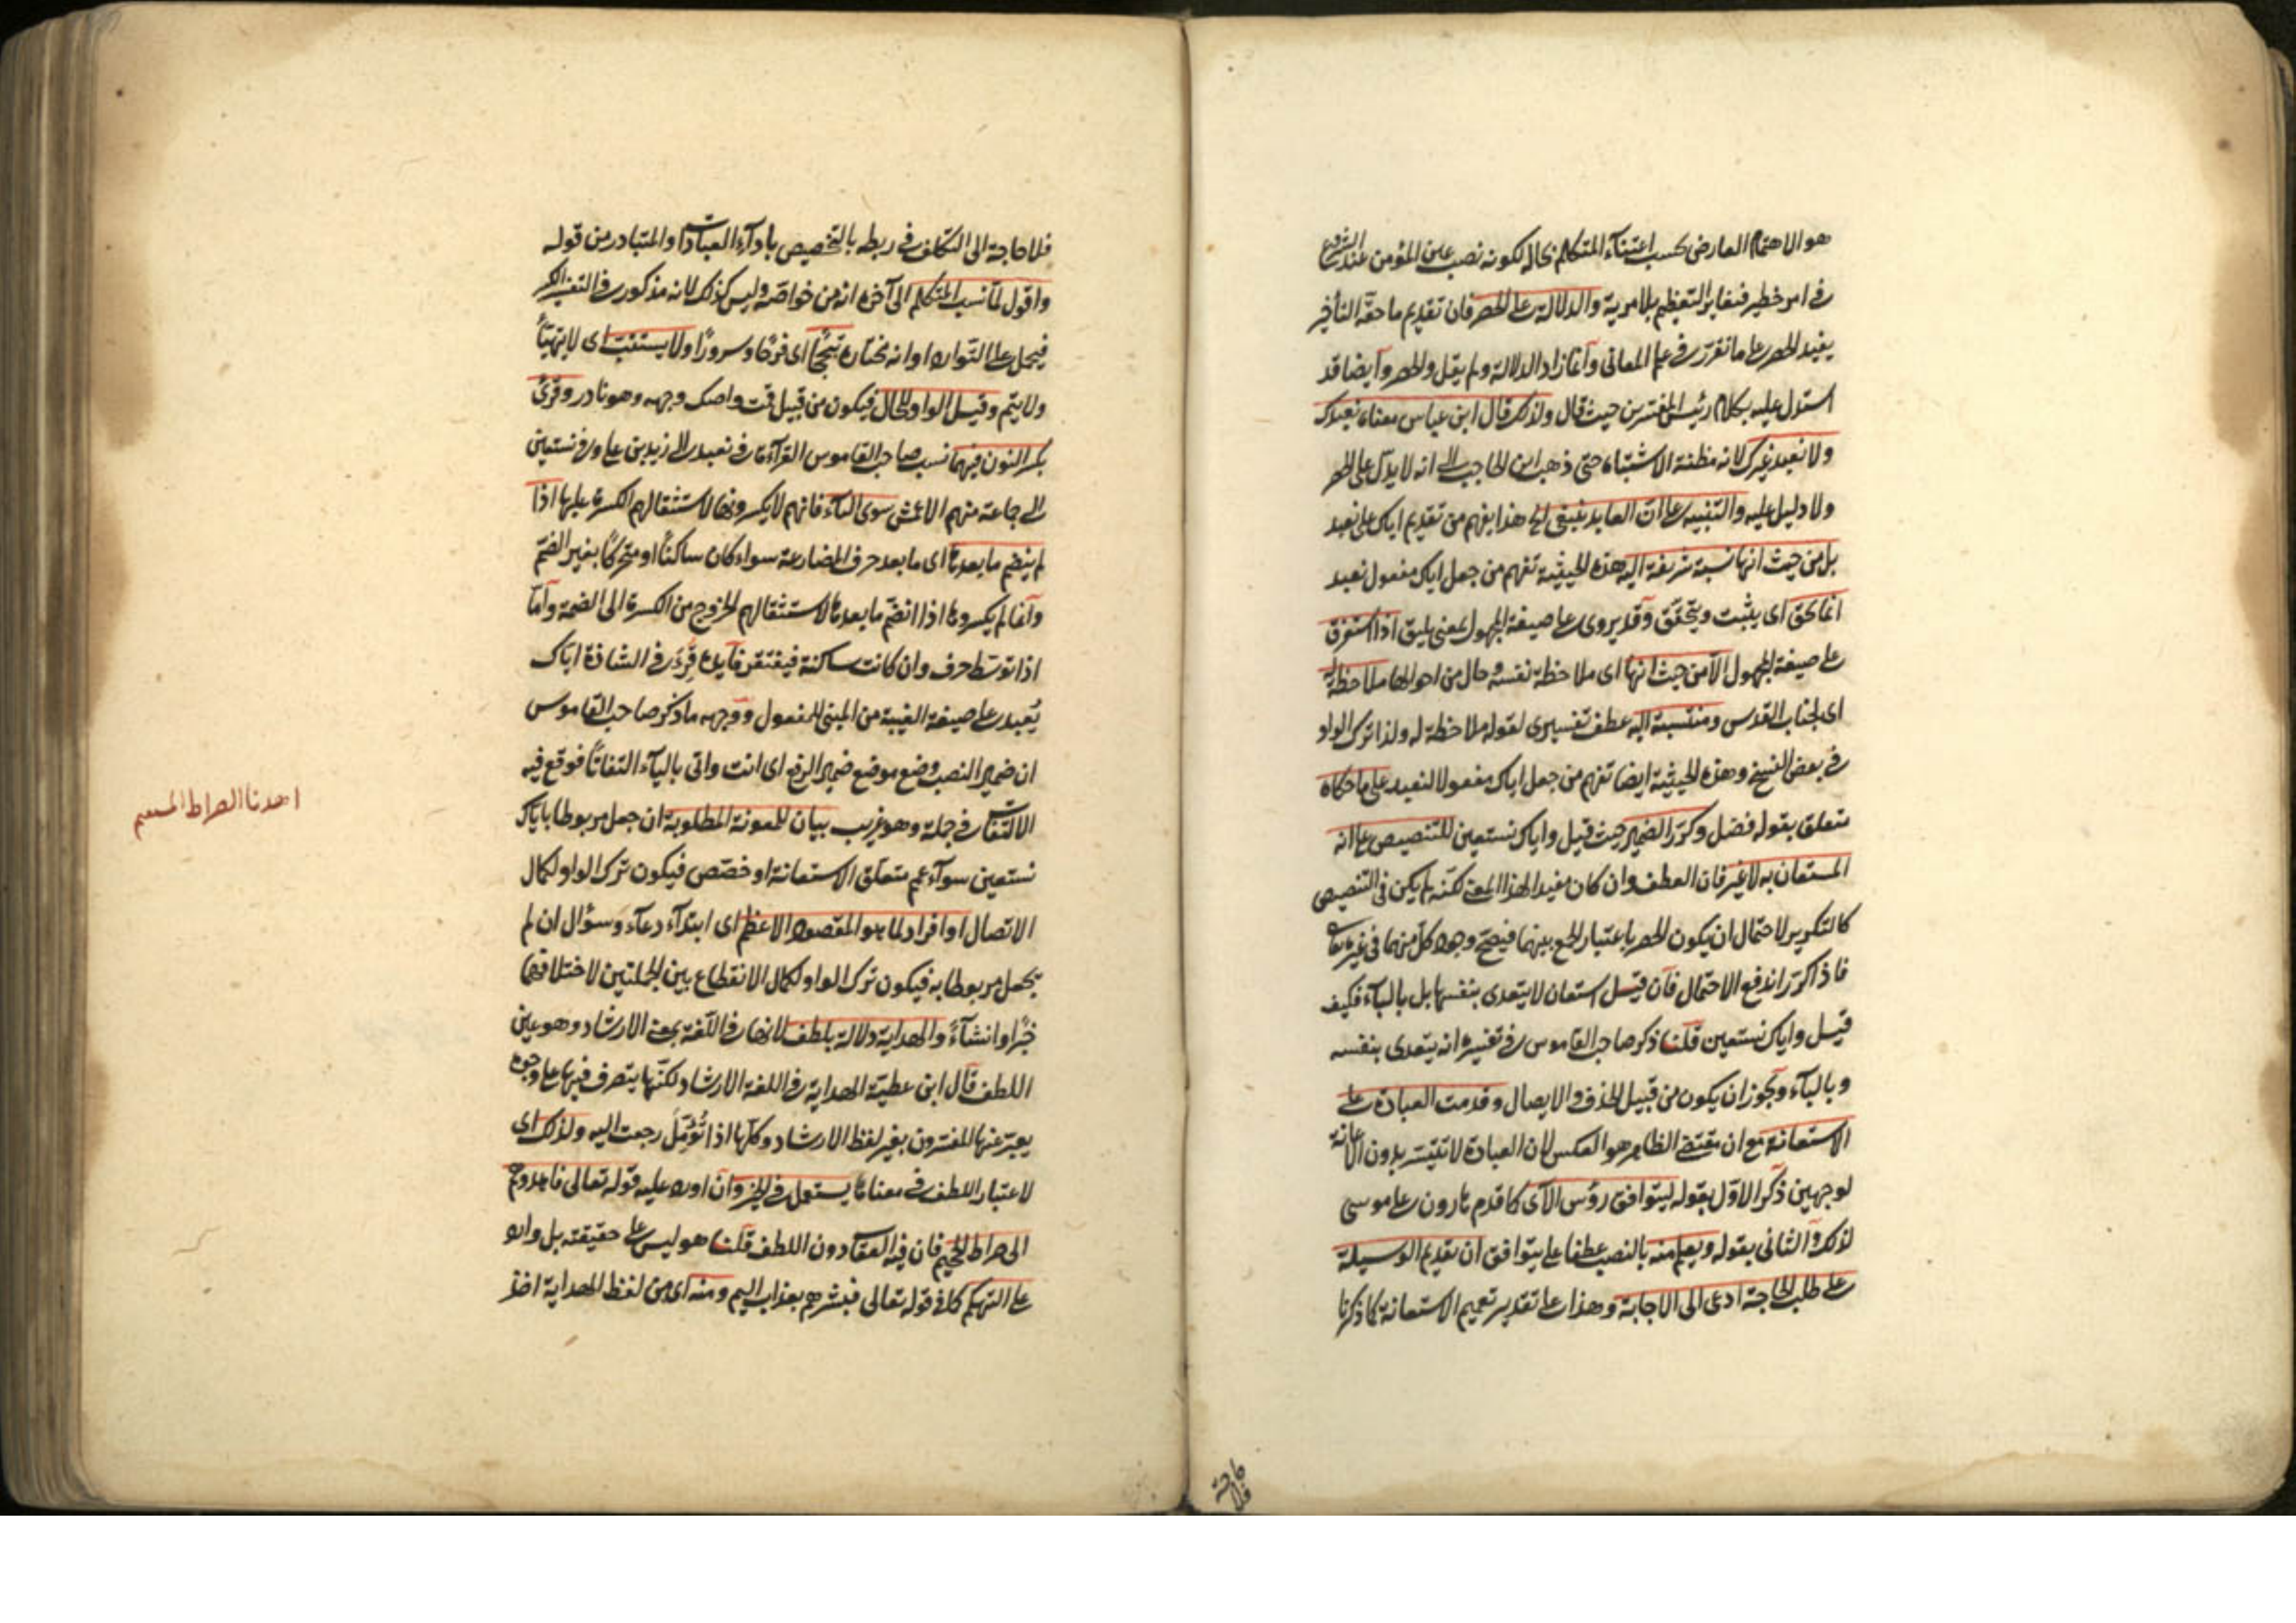 هو الاهتمام العارضى بحسب اعتناء المتكلم بحاله لكونه نصب عين المؤمن عند الشروع
فى امر خطير فيغاير التعظيم بلا مرية والدلالة على الحصر فان تقديم ما حقه التأخير
يفيد الحصر على ما تقرر فى علم المعانى وانما زاد الدلالة ولم يقل والحصر وايضا قد
استدل عليه بكلام رئيس المفسرين حيث قال ولذلك قال ابن عباس معناه نعبدك
ولا نعبد غيرك لانه مظنة الاشتباه حتى ذهب ابن الحاجب الى انه لا يدل على الحصر
ولا دليل عليه والتنبيه على ان العابد ينبغى الخ هذا يفهم من تقديم اياك على نعبد
بل من حيث انها نسبة شريفة اليه هذه الحيثية تفهم من جعل اياك مفعول نعبد
انما يحق اى يثبت ويتحقق وقد يروى على صيغة المجهول بمعنى يليق اذا استغرق
على صيغة المجهول الا من حيث انها اى ملاحظة نفسه وحال من احوالها ملاحظة
اى لجناب القدس ومنتسبة اليه عطف تفسيرى لقوله ملاحظة له ولذا ترك الواو
فى بعض النسخ وهذه الحيثية ايضا تفهم من جعل اياك مفعولا لنعبد على ما حكاه
متعلق بقوله فضل وكرر الضمير حيث قيل واياك نستعين للتنصيص على انه
المستعان به لا غير فان العطف وان كان مفيدا لهذا المعنى لكنه لم يكن فى التنصيص
كالتكرير لاحتمال ان يكون الحصر باعتبار الجمع بينهما فيصح وجود كل منهما فى غيره تعالى
فاذا كرر اندفع الاحتمال فان قيل استعان لا يتعدى بنفسها بل بالباء فكيف
قيل واياك نستعين قلت ذكر صاحب القاموس فى تفسيره انه يتعدى بنفسه
وبالباء ويجوز ان يكون من قبيل الحذف والايصال وقدمت العبادة على
الاستعانة مع ان مقتضى الظاهر هو العكس لان العبادة لا تتيسر بدون الاعانة
لوجهين ذكر الاول بقوله ليتوافق رؤس الآى كما قدم هارون على موسى
لذلك والثانى بقوله ويعلم منه بالنصب عطفا على يتوافق ان تقديم الوسيلة
على طلب الحاجة ادعى الى الاجابة وهذا على تقدير تعميم الاستعانة كما ذكرنا
فلا حاجة
فلا حاجة الى التكلف فى ربطه بالتخصيص باداء العبادات والمتبادر من قوله
واقول لما نسب المتكلم الى آخره انه من خواصه وليس كذلك لانه مذكور فى التفسير الكبير
فيحمل على التوارد او انه مختاره تبجحا اى فرحا وسرورا ولا يستتب اى لا يتهيأ
ولا يتم وقيل الواو للحال فيكون من قبيل قمت واصك وجهه وهو نادر وقرئ
بكسر النون فيهما نسب صاحب القاموس القراءة فى نعبد الى زيد بن على وفى نستعين
الى جماعة منهم الاعمش سوى الياء فانهم لا يكسرونها لاستثقالهم الكسرة عليها اذا
لم ينضم ما بعدها اى ما بعد حرف المضارعة سواء كان ساكنا او متحركا بغير الضم
وانما لم يكسروها اذا انضم ما بعدها لاستثقالهم الخروج من الكسرة الى الضمة واما
اذا توسط حرف وان كانت ساكنة فيفتقر فايدة قرئ فى الشاذة اياك
يُعبد على صيغة الغيبة من المبنى للمفعول ووجهه ما ذكر صاحب القاموس
ان ضمير النصب وضع موضع ضمير الرفع اى انت واتى بالياء التفاتا فوقع فيه
الالتفات فى جملة وهو غريب بيان للمعونة المطلوبة ان جعل مربوطا باياك
نستعين سواء عمم متعلق الاستعانة او خصص فيكون ترك الواو لكمال
الاتصال او افراد لما هو المقصود الاعظم اى ابتداء دعاء وسؤال ان لم
يجعل مربوطا به فيكون ترك الواو لكمال الانقطاع بين الجملتين لاختلافهما
خبرا وانشاء والهداية دلالة بلطف لانها فى اللغة بمعنى الارشاد وهو عين
اللطف قال ابن عطية الهداية فى اللغة الارشاد لكنها يتصرف فيها على وجوه
يعبر عنها المفسرون بغير لفظ الارشاد وكلها اذا تؤمل رجعت اليه ولذلك اى
لاعتبار اللطف فى معناها يستعمل فى الخير وان اورد عليه قوله تعالى فاهدوهم
الى صراط الجحيم فان فيه العقاد دون اللطف قلنا هو ليس على حقيقته بل وارد
على التهكم كما فى قوله تعالى فبشرهم بعذاب اليم ومنه اى من لفظ الهداية اخذ
اهدنا الصراط المستقيم